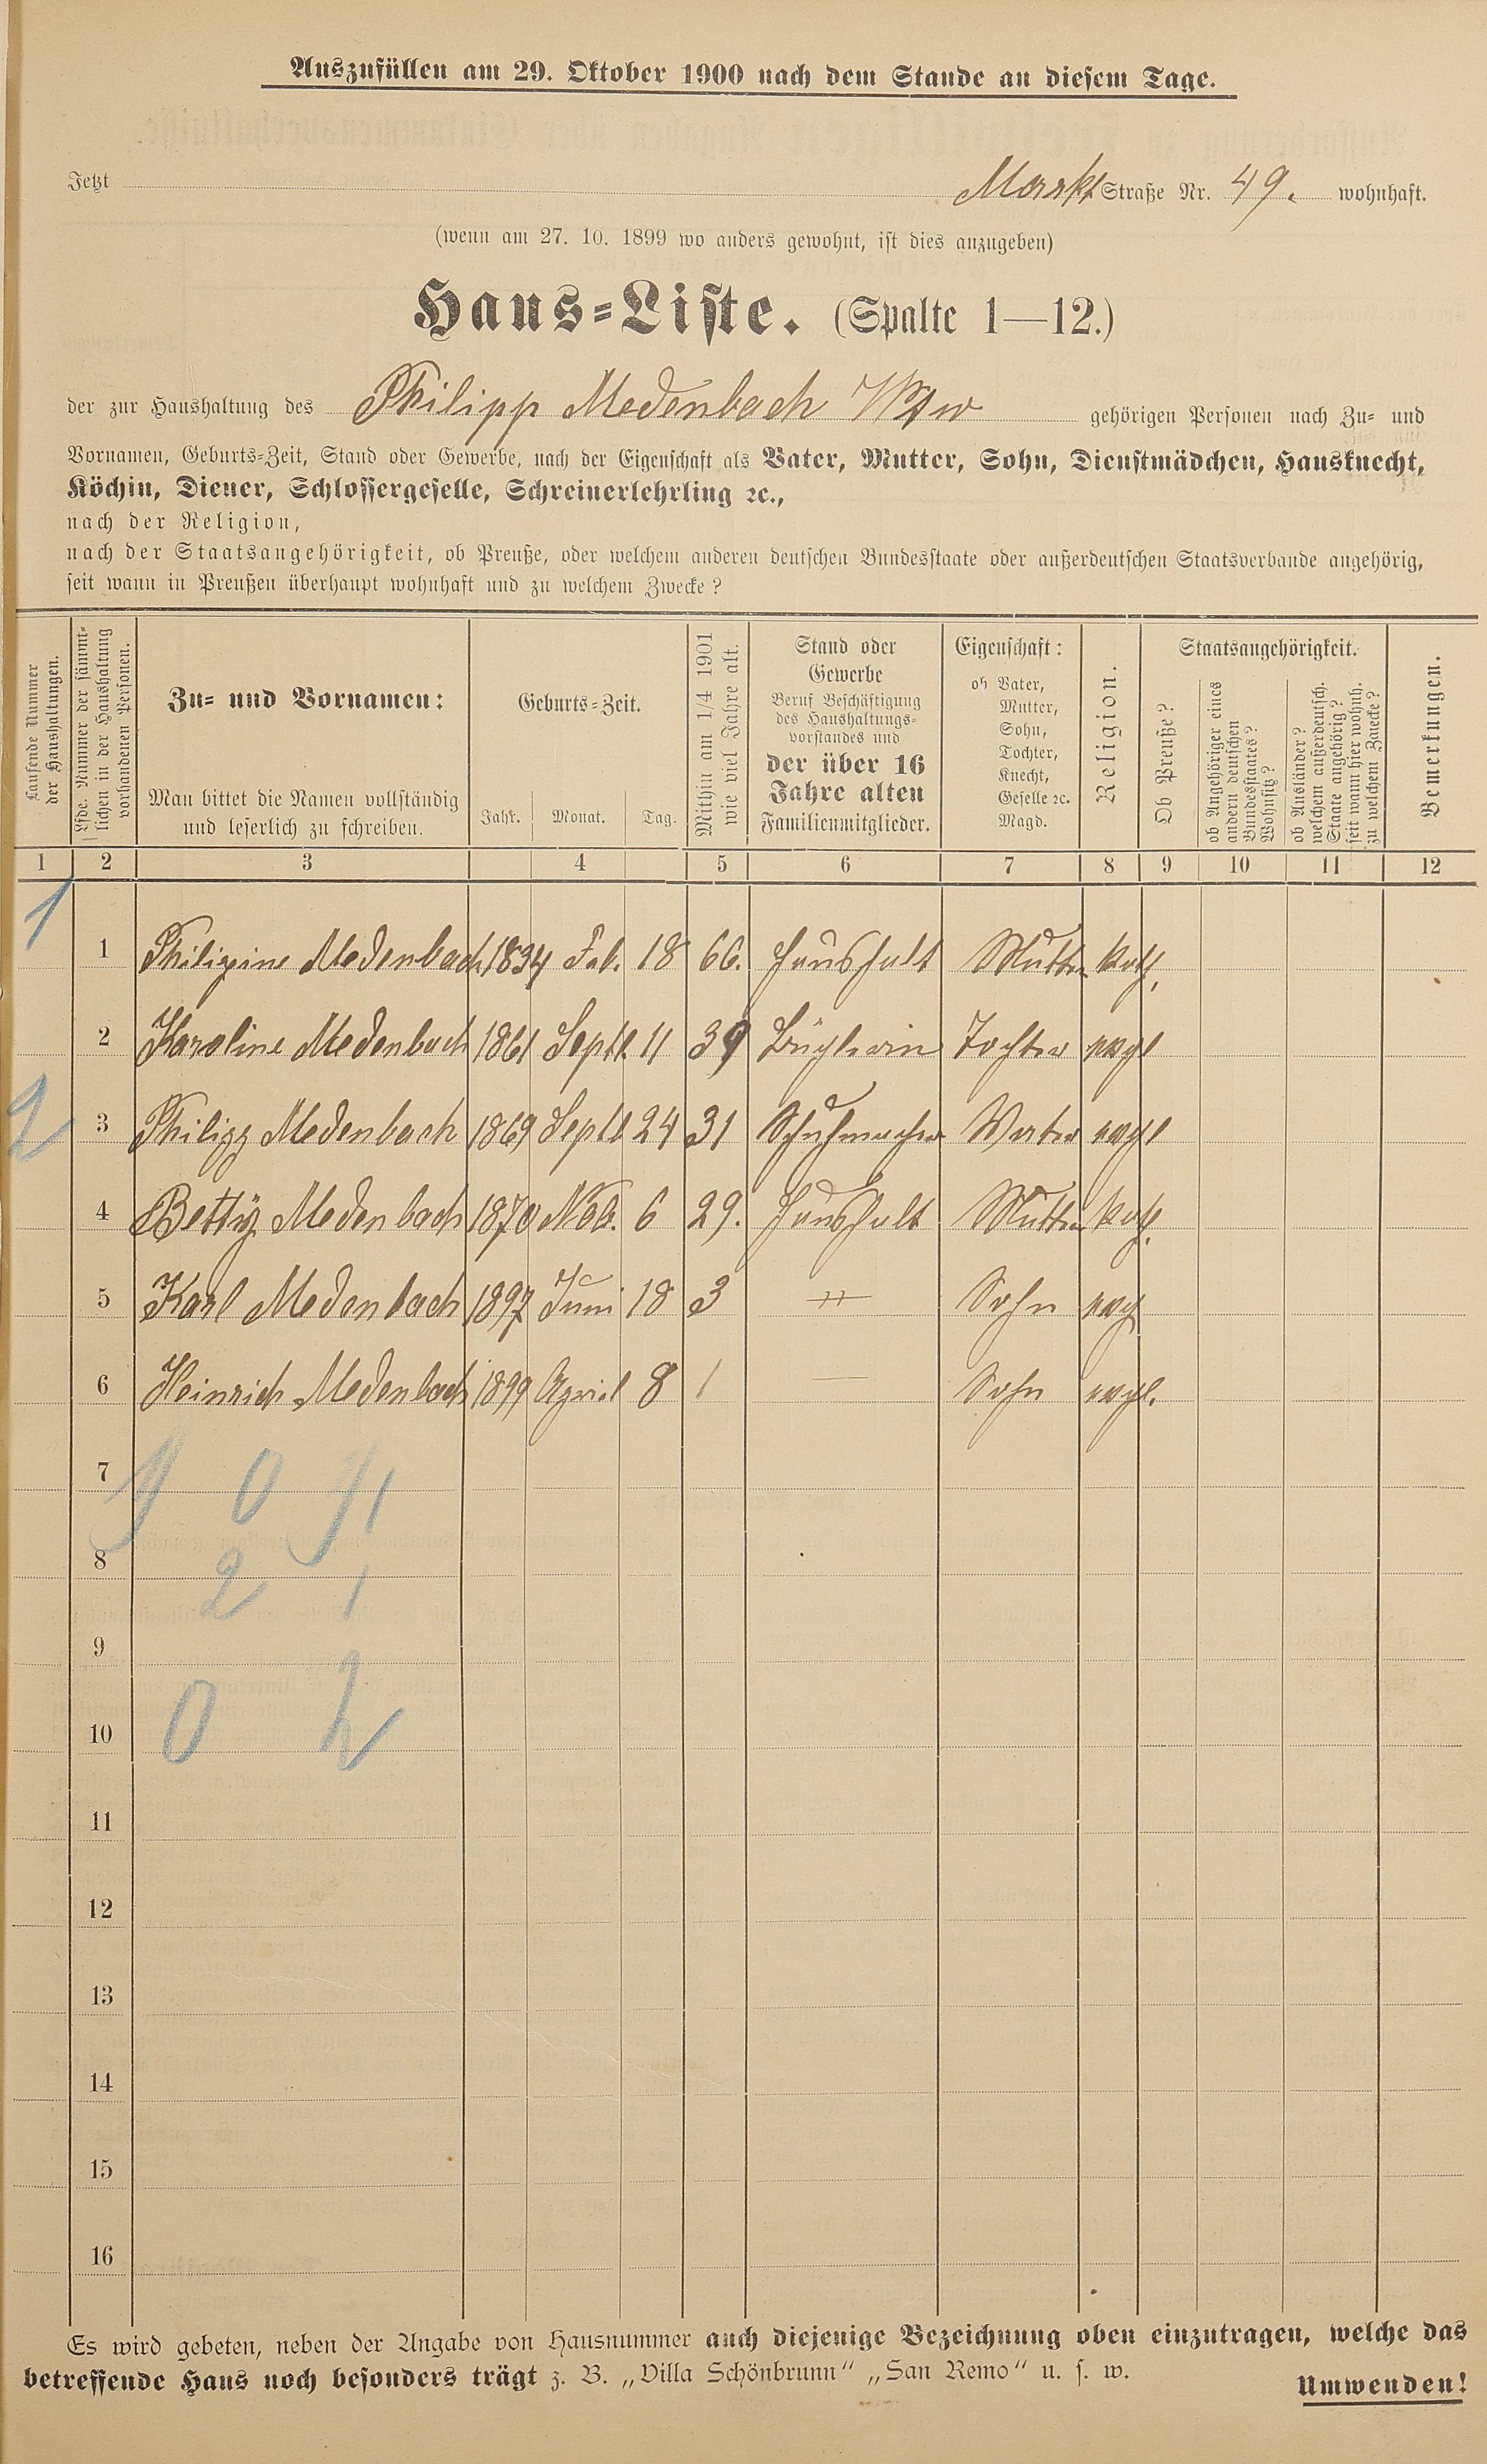 Auszufüllen am 29. Oktober 1900 nach dem Stande an diesem Tage.
Jetzt Markt Straße Nr. 49. wohnhaft.
(wenn am 27. 10. 1899 wo anders gewohnt, ist dies anzugeben)
Haus-Liste. (Spalte 1—12.)
der zur Haushaltung des Philipp Medenbach Wtw gehörigen Personen nach Zu- und
Vornamen, Geburts-Zeit, Stand oder Gewerbe, nach der Eigenschaft als Vater, Mutter, Sohn, Dienstmädchen, Hausknecht,
Köchin, Diener, Schlossergeselle, Schreinerlehrling ꝛc.,
nach der Religion,
nach der Staatsangehörigkeit, ob Preuße, oder welchem anderen deutschen Bundesstaate oder außerdeutschen Staatsverbande angehörig,
seit wann in Preußen überhaupt wohnhaft und zu welchem Zwecke?
Laufende Nummer
der Haushaltungen.
Lfde. Nummer der sämmt-
lichen in der Haushaltung
vorhandenen Personen.
Zu- und Vornamen:
Man bittet die Namen vollständig
und leserlich zu schreiben.
Geburts-Zeit.
Jahr. Monat. Tag.
Mithin am 1/4 1901
wie viel Jahre alt.
Stand oder
Gewerbe
Beruf Beschäftigung
des Haushaltungs-
vorstandes und
der über 16
Jahre alten
Familienmitglieder.
Eigenschaft:
ob Vater,
Mutter,
Sohn,
Tochter,
Knecht,
Geselle ꝛc.
Magd.
Religion.
Staatsangehörigkeit.
Ob Preuße?
ob Angehöriger eines
andern deutschen
Bundesstaates?
Wohnsitz?
ob Ausländer?
welchem außerdeutsch.
Staate angehörig?
seit wann hier wohnh.
zu welchem Zwecke?
Bemerkungen.
1 2 3 4 5 6 7 8 9 10 11 12
1 1 Philippine Medenbach 1834 Feb. 18 66. Haushalt Mutter kath.
2 Karoline Medenbach 1861 Sept. 11 39 Büglerin Tochter evgl
2 3 Philipp Medenbach 1869 Sept 24 31 Schuhmacher Vater evgl
4 Bettÿ Medenbach 1870 Nov. 6 29. Haushalt Mutter kath.
5 Karl Medenbach 1897 Juni 18 3 Sohn evg
6 Heinrich Medenbach 1899 April 8 1 — Sohn evgl.
7 0
8 2 1
9
10 0 2
11
12
13
14
15
16
Es wird gebeten, neben der Angabe von Hausnummer auch diejenige Bezeichnung oben einzutragen, welche das
betreffende Haus noch besonders trägt z. B. „Villa Schönbrunn“ „San Remo“ u. s. w.
Umwenden!